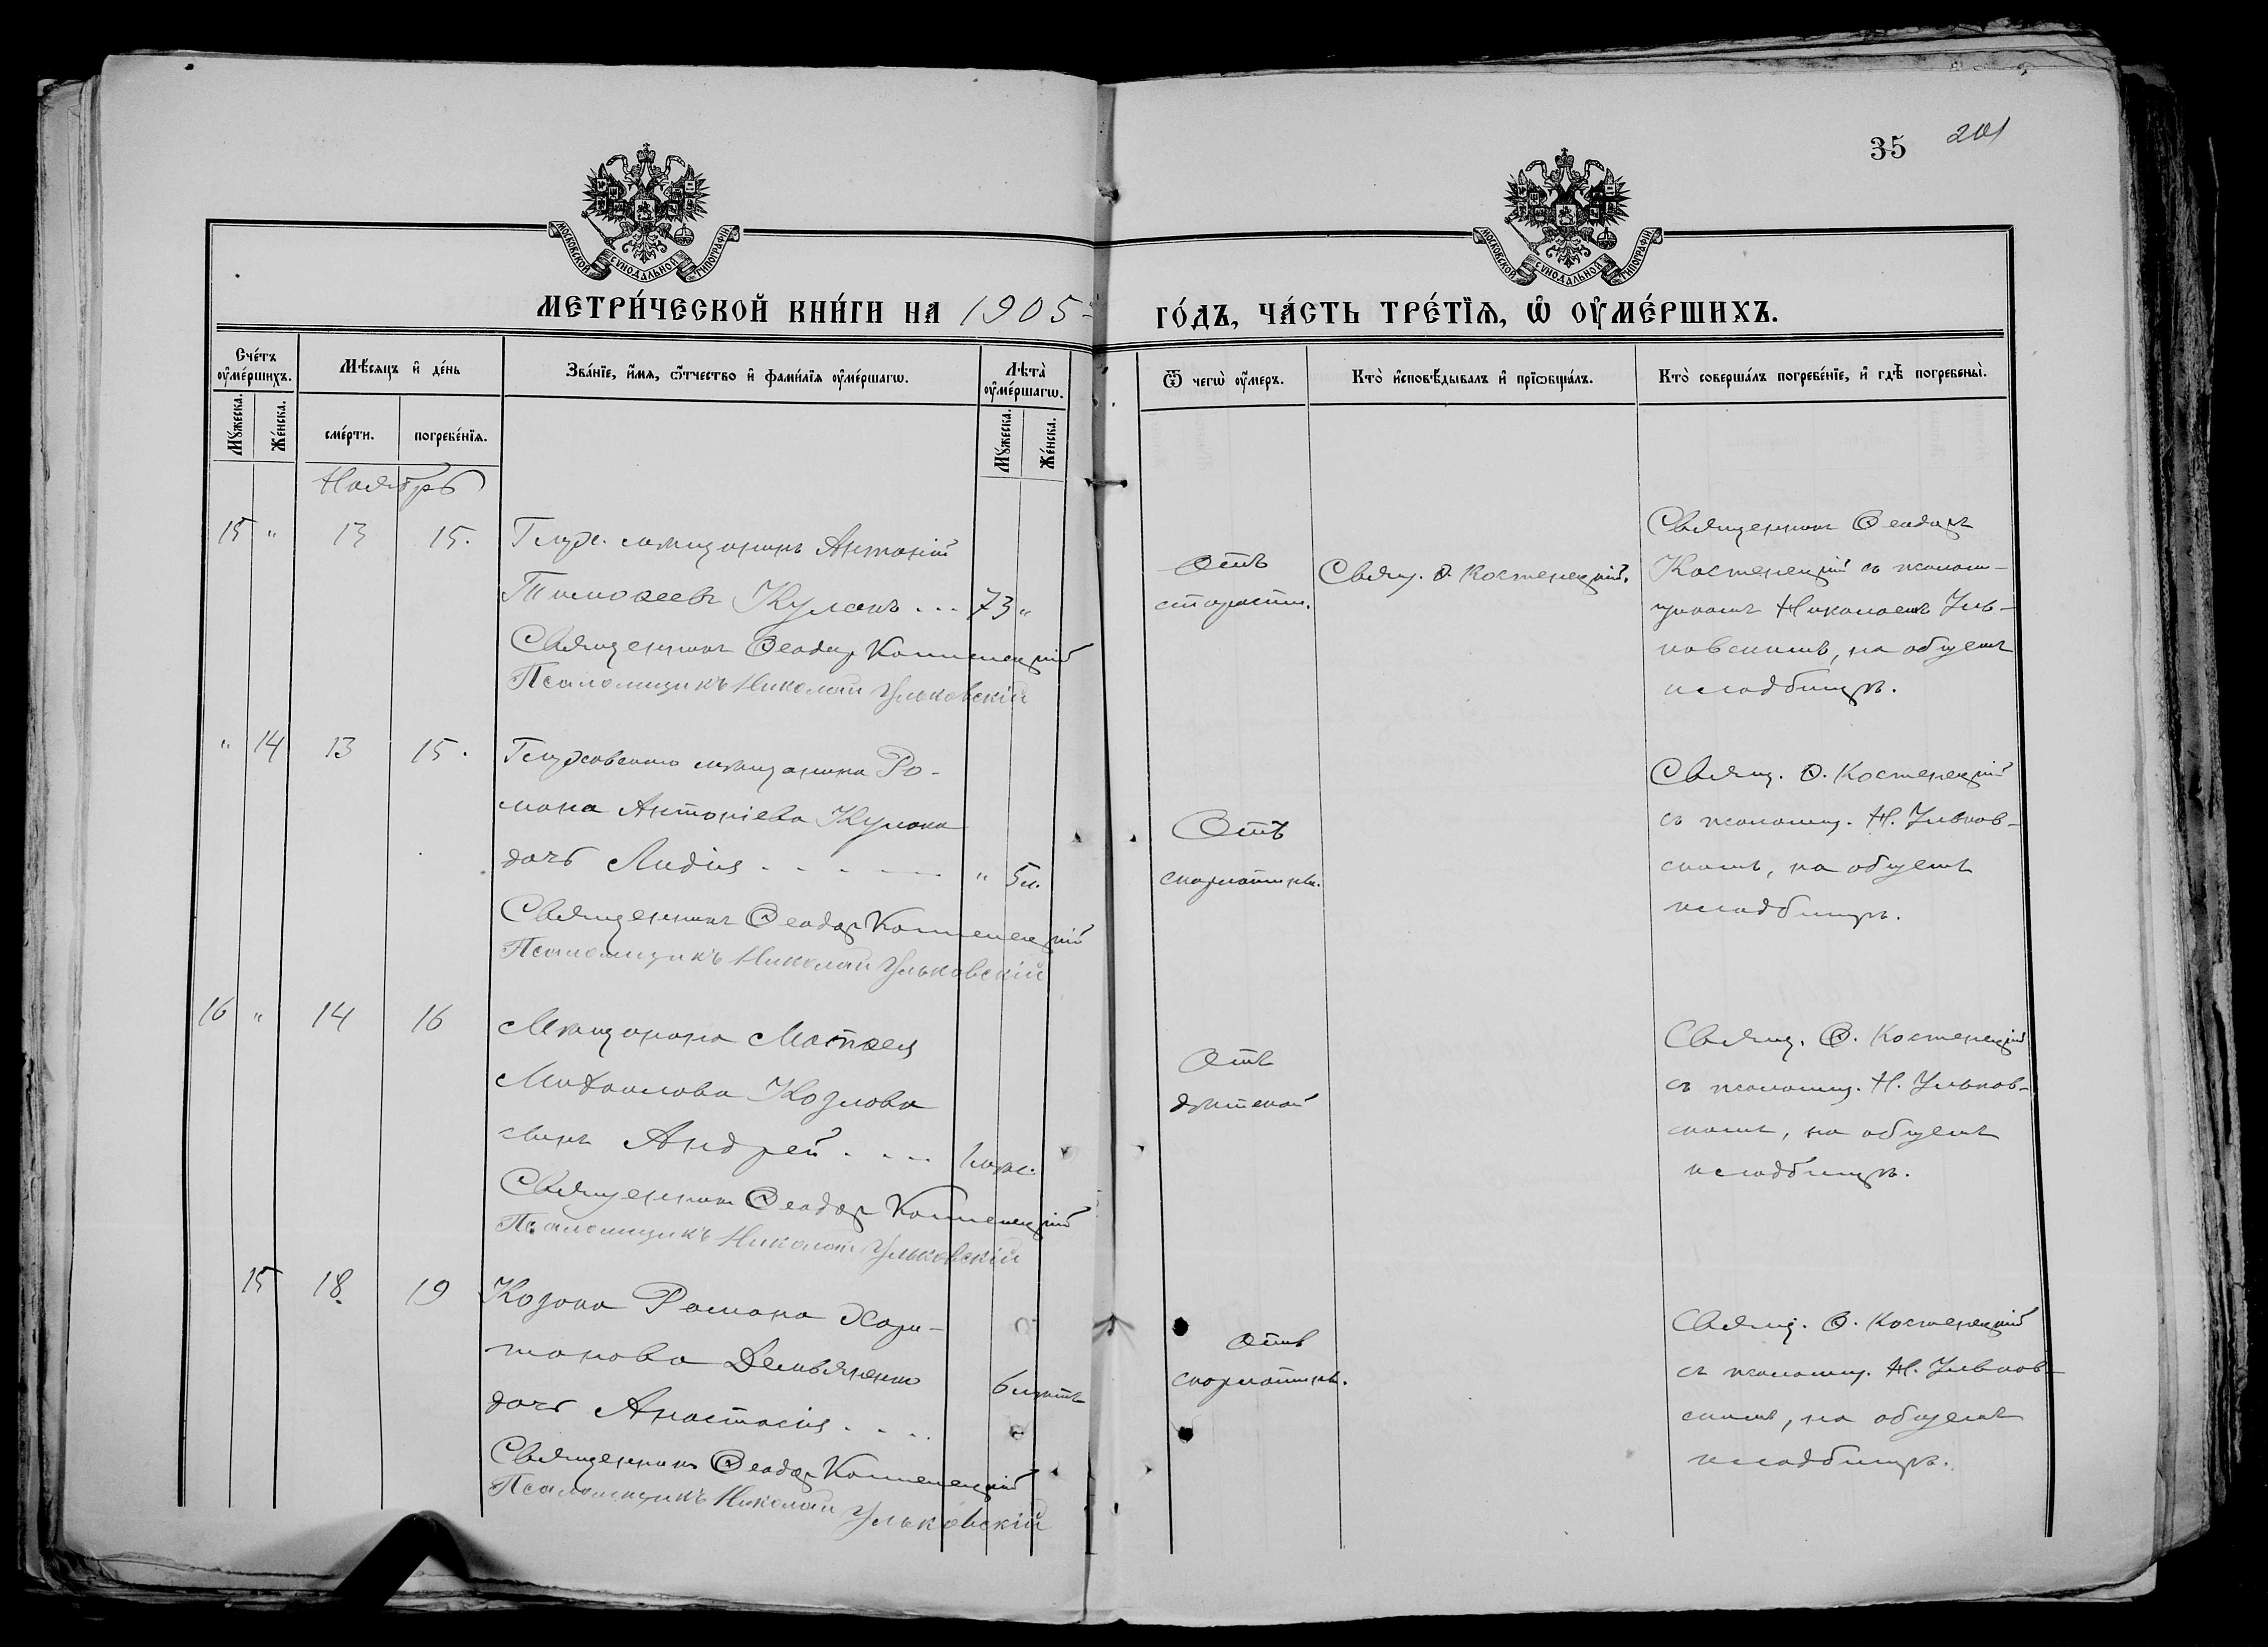 35 201
МОСКОВСКОЙ СѴНОДАЛЬНОЙ ТИПОГРАФІИ
МОСКОВСКОЙ СѴНОДАЛЬНОЙ ТИПОГРАФІИ
МЕТРИ́ЧЕСКОЙ КНИ́ГИ НА 1905
ГО́ДЪ, ЧА́СТЬ ТРЕ́ТЇѦ, Ѡ҆ ОУ҆МЕ́РШИХЪ.
Сче́тъ оу҆ме́ршихъ.
Мѣ́сѧцъ и҆ де́нь
Зва́нїе, и҆́мѧ, ѻ҆́тчество и҆ фами́лїѧ оу҆ме́ршагѡ.
Лѣта̀ оу҆ме́ршагѡ.
Ѿ чегѡ̀ оу҆́меръ.
Кто̀ и҆сповѣ́дывалъ и҆ прїѡбща́лъ.
Кто̀ соверша́лъ погребе́нїе, и҆ гдѣ̀ погребены̀.
Мꙋ́жеска.
Же́нска.
сме́рти.
погребе́нїѧ.
Мꙋ́жеска.
Же́нска.
Ноябрь
15 " 13 15.
Глух. мѣщанинъ Антоній
Тимоѳеевъ Кулакъ . . . 73 "
Священникъ Ѳеодоръ Костенецкій
Псаломщикъ Николай Ульковскій
Отъ
старости.
Свящ. Ѳ. Костенецкій.
Священникъ Ѳеодоръ
Костенецкій съ псалом-
щикомъ Николаемъ Уль-
ковскимъ, на общемъ
кладбищѣ.
" 14 13 15.
Глуховского мѣщанина Ро-
мана Антоніева Кулака
дочь Лидія . . . . . . " 5 л.
Священникъ Ѳеодоръ Костенецкій
Псаломщикъ Николай Ульковскій
Отъ
скарлатины.
Свящ. Ѳ. Костенецкій
съ псаломщ. Н. Ульков-
скимъ, на общемъ
кладбищѣ.
16 " 14 16
Мѣщанина Матѳея
Михаилова Козлова
сынъ Андрей . . . .
Священникъ Ѳеодоръ Костенецкій
Псаломщикъ Николай Ульковскій
Отъ
дѣтской
Свящ. Ѳ. Костенецкій
съ псаломщ. Н. Ульков-
скимъ, на общемъ
кладбищѣ.
15 18 19
Козака Романа Хари-
тонова Демьяненко
дочь Анастасія . . . . 6 лѣтъ
Священникъ Ѳеодоръ Костенецкій
Псаломщикъ Николай Ульковскій
Отъ
скарлатины.
Свящ. Ѳ. Костенецкій
съ псаломщ. Н. Ульков-
скимъ, на общемъ
кладбищѣ.